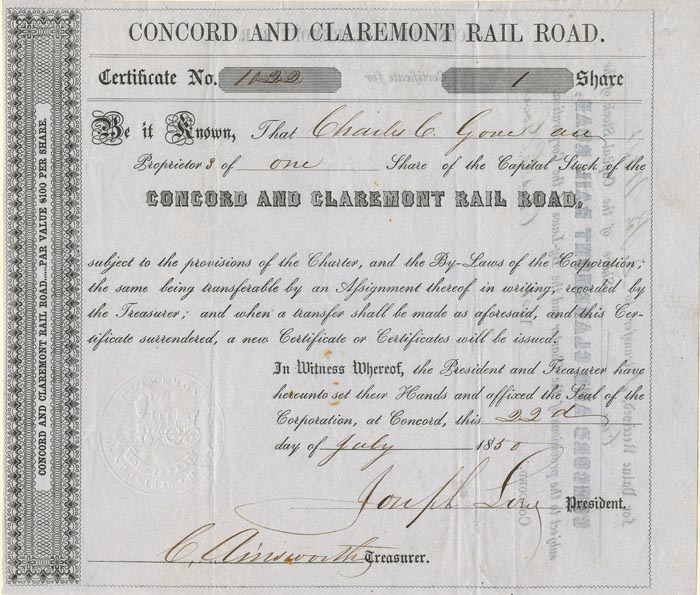 CONCORD AND CLAREMONT RAIL ROAD.
Certificate No. 1022 1 Share
Be it Known, That Charles C. Gove
Proprietor of one Share of the Capital Stock of the
CONCORD AND CLAREMONT RAIL ROAD,
subject to the provisions of the Charter, and the By-Laws of the Corporation;
the same being transferable by an Assignment thereof in writing, recorded by
the Treasurer; and when a transfer shall be made as aforesaid, and this Cer-
tificate surrendered, a new Certificate or Certificates will be issued.
In Witness Whereof, the President and Treasurer have
hereunto set their Hands and affixed the Seal of the
Corporation, at Concord, this 22d
day of July 1850
Joseph Low President.
C. Ainsworth Treasurer.
CONCORD AND CLAREMONT RAIL ROAD....PAR VALUE $100 PER SHARE.